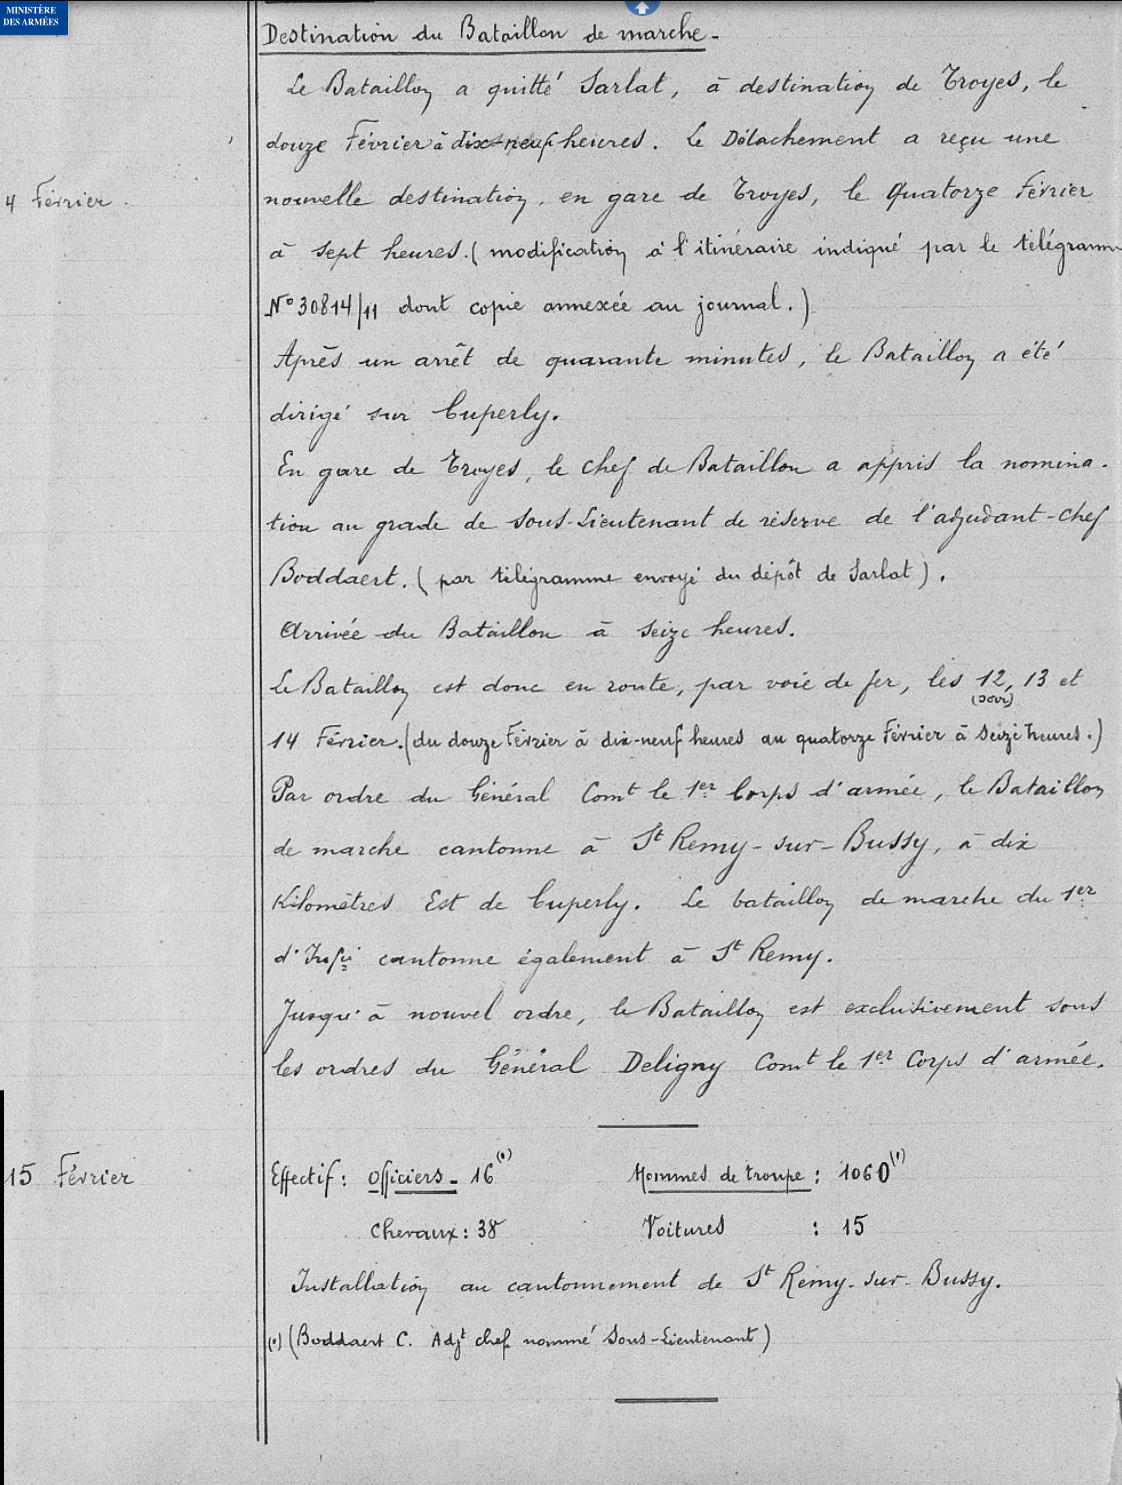 MINISTÈRE
DES ARMÉES
Destination du Bataillon de marche -
Le Bataillon a quitté Sarlat, à destination de Troyes, le
douze Février à dix-neuf heures. Le Détachement a reçu une
4 Février
nouvelle destination, en gare de Troyes, le Quatorze Février
à sept heures. (modification à l'itinéraire indiqué par le télégramme
N° 30814/11 dont copie annexée au journal.)
Après un arrêt de quarante minutes, le Bataillon a été
dirigé sur Cuperly.
En gare de Troyes, le chef de Bataillon a appris la nomina-
tion au grade de sous-Lieutenant de réserve de l'adjudant-chef
Boddaert. (par télégramme envoyé du dépôt de Sarlat).
Arrivée du Bataillon à seize heures.
Le Bataillon est donc en route, par voie de fer, les 12, 13 et
(soir)
14 Février. (du douze Février à dix-neuf heures au quatorze Février à seize heures.)
Par ordre du Général Comt le 1er Corps d'armée, le Bataillon
de marche cantonne à St Remy-sur-Bussy, à dix
Kilomètres Est de Cuperly. Le bataillon de marche du 1er
d'Infie cantonne également à St Remy.
Jusqu'à nouvel ordre, le Bataillon est exclusivement sous
les ordres du Général Deligny Comt le 1er Corps d'armée.
15 Février
Effectif : Officiers - 16 (1) Hommes de troupe : 1060 (1)
Chevaux : 38 Voitures : 15
Installation au cantonnement de St Remy-sur-Bussy.
(1) (Boddaert C. Adjt chef nommé Sous-Lieutenant)